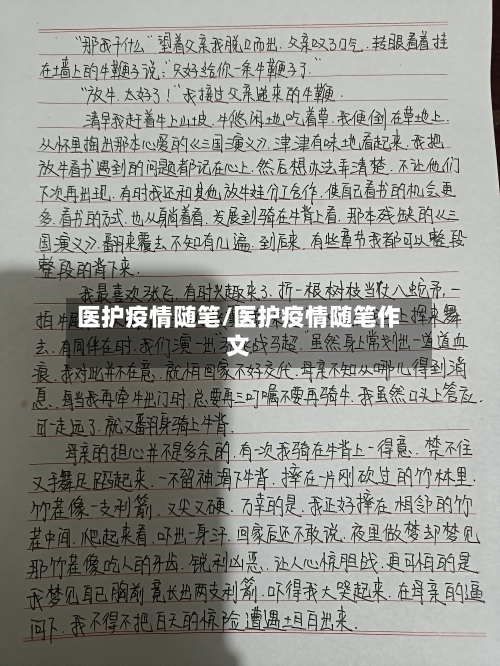 “那我干什么”望着父亲我脱口而出.父亲叹了口气.转眼看着挂
在墙上的牛鞭子说:“只好给你一条牛鞭子了”
“放牛.太好了!”我接过父亲递来的牛鞭.
清早我赶着牛上山坡.牛悠闲地吃着草.我便倒在草地上.
从怀里掏出那本心爱的《三国演义》.津津有味地看起来.我把
放牛看书遇到的问题都记在心上.然后想办法弄清楚.不让他们
下次再出现.有时我还和其他放牛娃分工合作.使自己看书的机会更
多.看书的方式.也从躺着看.发展到骑在牛背上看.那本残缺的《三
国演义》.翻来覆去不知有几遍.到后来.有些章节我都可以整段
整段的背下来.
我最喜欢张飞.有时兴趣来了.折一根树枝当丈八蛇矛.一
拍牛
医护疫情随笔/医护疫情随笔作
文
舞
去.有同伴在时.我们演一出 战马超.虽然身上常划出一道道血
痕.我对此并不在意.就怕回家不好交代.母亲不知从哪儿得到消
息.每当我再牵牛出门时.总要再三叮嘱不要再骑牛.我虽然口头上答应.
可一走远了.就又翻身骑上牛背.
母亲的担心并不是多余的.有一次我骑在牛背上一得意.禁不住
又手舞足蹈起来.一不留神滑下牛背.摔在一片刚砍过的竹林里.
竹茬像一支利箭.又尖又硬.万幸的是.我正好摔在相邻的竹
茬中间.爬起来看.吓出一身汗.回家后还不敢说.夜里做梦却梦见
那竹茬像吃人的牙齿.锐利凶恶.让人心惊胆战.更可怕的是
我梦见自己胸前竟长出两支利箭.吓得我大哭起来.在母亲的逼
问下.我不得不把白天的惊险遭遇一一自白出来.